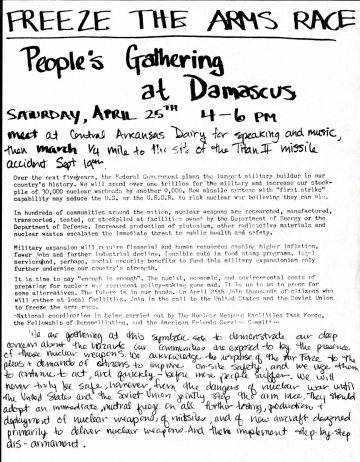 FREEZE THE ARMS RACE
People's Gathering
at Damascus
SATURDAY, APRIL 25TH 4-6 PM
meet at Central Arkansas Dairy for speaking and music,
then march 1/4 mile to the site of the Titan II missile
accident Sept 19th.
Over the next five years, the Federal Government plans the largest military buildup in our
country's history. We will spend over one trillion for the military and increase our stock-
pile of 30,000 nuclear warheads by another 9,000. New missile systems with "first strike"
capability may seduce the U.S. or the U.S.S.R. to risk nuclear war believing they can win.
In hundreds of communities around the nation, nuclear weapons are researched, manufactured,
transported, tested, or stockpiled at facilities owned by the Department of Energy or the
Department of Defense. Increased production of plutonium, other radioactive materials and
nuclear wastes escalates the immediate threat to public health and safety.
Military expansion will require financial and human resources causing higher inflation,
fewer jobs and further industrial decline. Sensible cuts in food stamp programs, legal
services and, perhaps, social security benefits to fund this military expansionism only
further undermine our country's strength.
It is time to say "enough is enough". The social, economic, and environmental costs of
preparing for nuclear war represent policy-making gone mad. It is up to us to press for
some alternatives. The future is in our hands. On April 25th join thousands of citizens who
will gather at local facilities. Join in the call to the United States and the Soviet Union
to freeze the arms race.
National coordination is being carried out by The Nuclear Weapons Facilities Task Force,
the Fellowship of Reconciliation, and the American Friends Service Committee
We are gathering at this symbolic site to demonstrate our deep
concern about the threats our communities are exposed to by the presence
of these nuclear weapons. We acknowledge the response of the Air Force to the
pleas & demands of citizens to improve on-site safety, and we urge them
to continue to act, and quickly - before more people suffer. We will
never truly be safe, however, from the dangers of nuclear war until
the United States and the Soviet Union jointly stop the arms race. They should
adopt an immediate, mutual freeze on all further testing, production &
deployment of nuclear weapons, of missiles, and of new aircraft designed
primarily to deliver nuclear weapons. And then implement step-by-step
dis-armament.